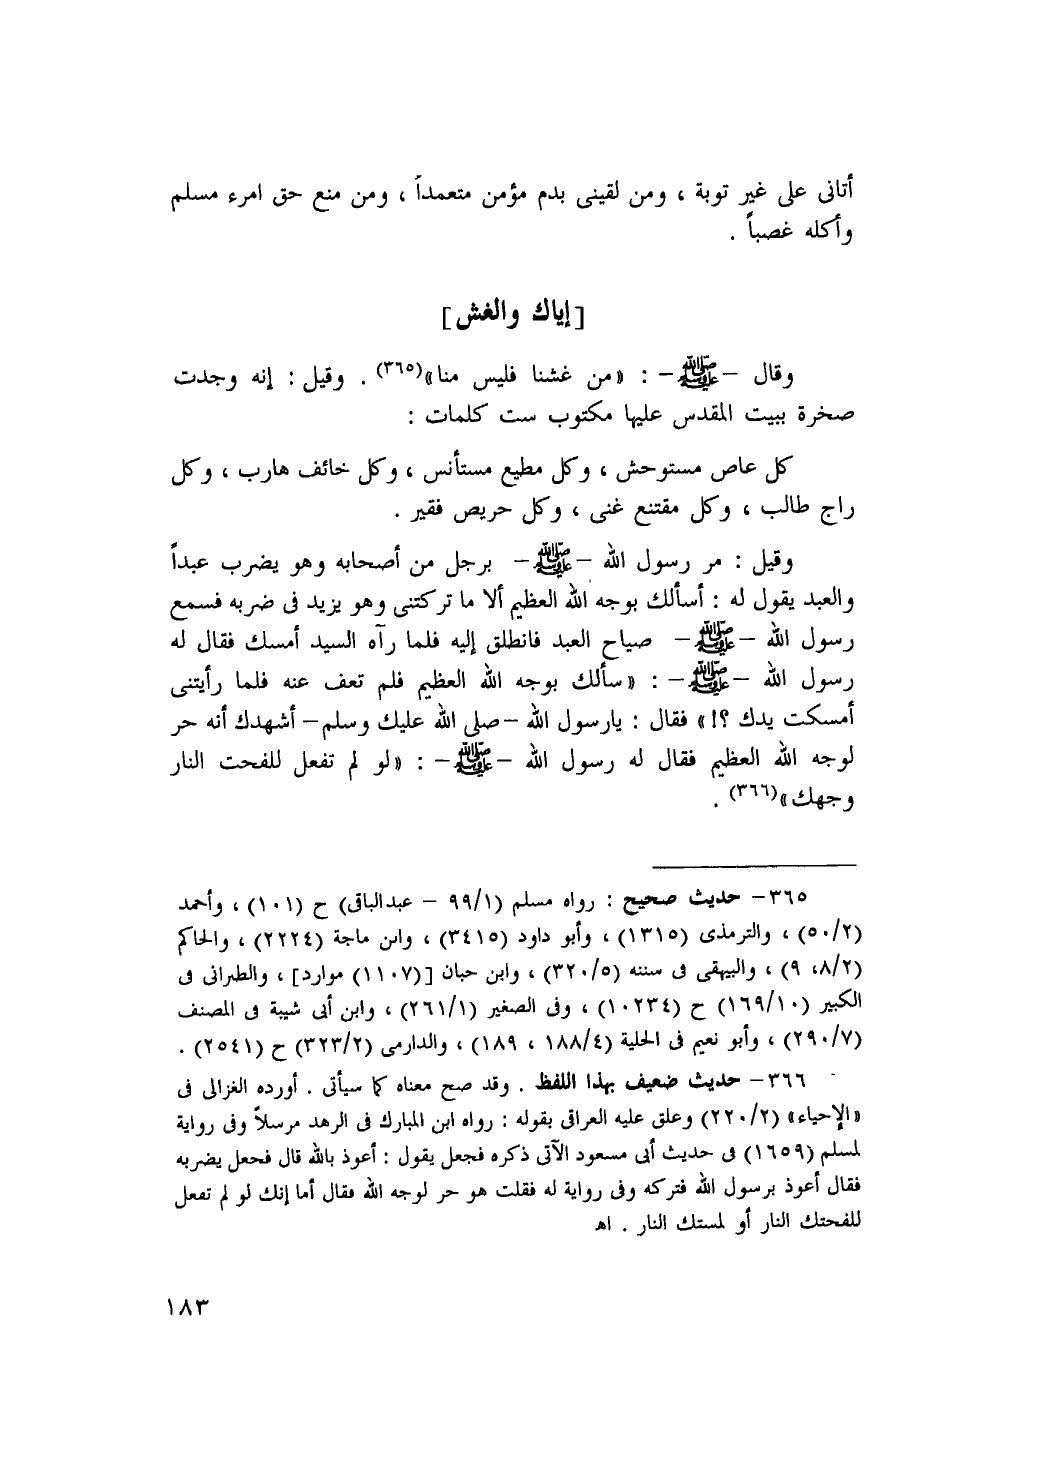 أتانى على غير توبة ، ومن لقينى بدم مؤمن متعمداً ، ومن منع حق امرء مسلم
وأكله غصباً .
[إياك والغش]
وقال – ﷺ – : «من غشنا فليس منا»(٣٦٥) . وقيل : إنه وجدت
صخرة ببيت المقدس عليها مكتوب ست كلمات :
كل عاص مستوحش ، وكل مطيع مستأنس ، وكل خائف هارب ، وكل
راج طالب ، وكل مقتنع غنى ، وكل حريص فقير .
وقيل : مر رسول الله – ﷺ – برجل من أصحابه وهو يضرب عبداً
والعبد يقول له : أسألك بوجه الله العظيم ألا ما تركتنى وهو يزيد فى ضربه فسمع
رسول الله – ﷺ – صياح العبد فانطلق إليه فلما رآه السيد أمسك فقال له
رسول الله – ﷺ – : «سألك بوجه الله العظيم فلم تعف عنه فلما رأيتنى
أمسكت يدك ؟!» فقال : يارسول الله –صلى الله عليك وسلم– أشهدك أنه حر
لوجه الله العظيم فقال له رسول الله – ﷺ – : «لو لم تفعل للفحت النار
وجهك»(٣٦٦) .
٣٦٥– حديث صحيح : رواه مسلم (٩٩/١ – عبدالباقى) ح (١٠١) ، وأحمد
(٥٠/٢) ، والترمذى (١٣١٥) ، وأبو داود (٣٤١٥) ، وابن ماجة (٢٢٢٤) ، والحاكم
(٨/٢، ٩) ، والبيهقى فى سننه (٣٢٠/٥) ، وابن حبان [(١١٠٧) موارد] ، والطبرانى فى
الكبير (١٦٩/١٠) ح (١٠٢٣٤) ، وفى الصغير (٢٦١/١) ، وابن أبى شيبة فى المصنف
(٢٩٠/٧) ، وأبو نعيم فى الحلية (١٨٨/٤ ، ١٨٩) ، والدارمى (٣٢٣/٢) ح (٢٥٤١) .
٣٦٦– حديث ضعيف بهذا اللفظ . وقد صح معناه كما سيأتى . أورده الغزالى فى
«الإحياء» (٢٢٠/٢) وعلق عليه العراقى بقوله : رواه ابن المبارك فى الزهد مرسلاً وفى رواية
لمسلم (١٦٥٩) فى حديث أبى مسعود الآتى ذكره فجعل يقول : أعوذ بالله قال فجعل يضربه
فقال أعوذ برسول الله فتركه وفى رواية له فقلت هو حر لوجه الله فقال أما إنك لو لم تفعل
للفحتك النار أو لمستك النار . اهـ
١٨٣